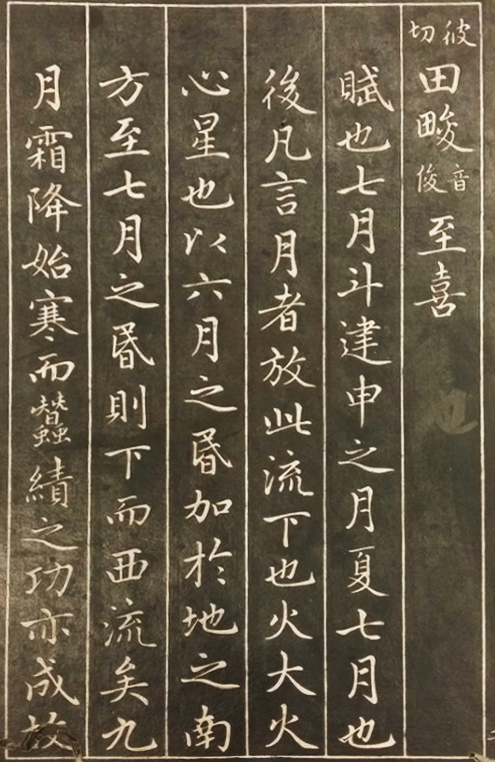 彼切田畯音俊至喜
賦也七月斗建申之月夏七月也
後凡言月者放此流下也火大火
心星也以六月之昏加於地之南
方至七月之昏則下而西流矣九
月霜降始寒而蠶績之功亦成故